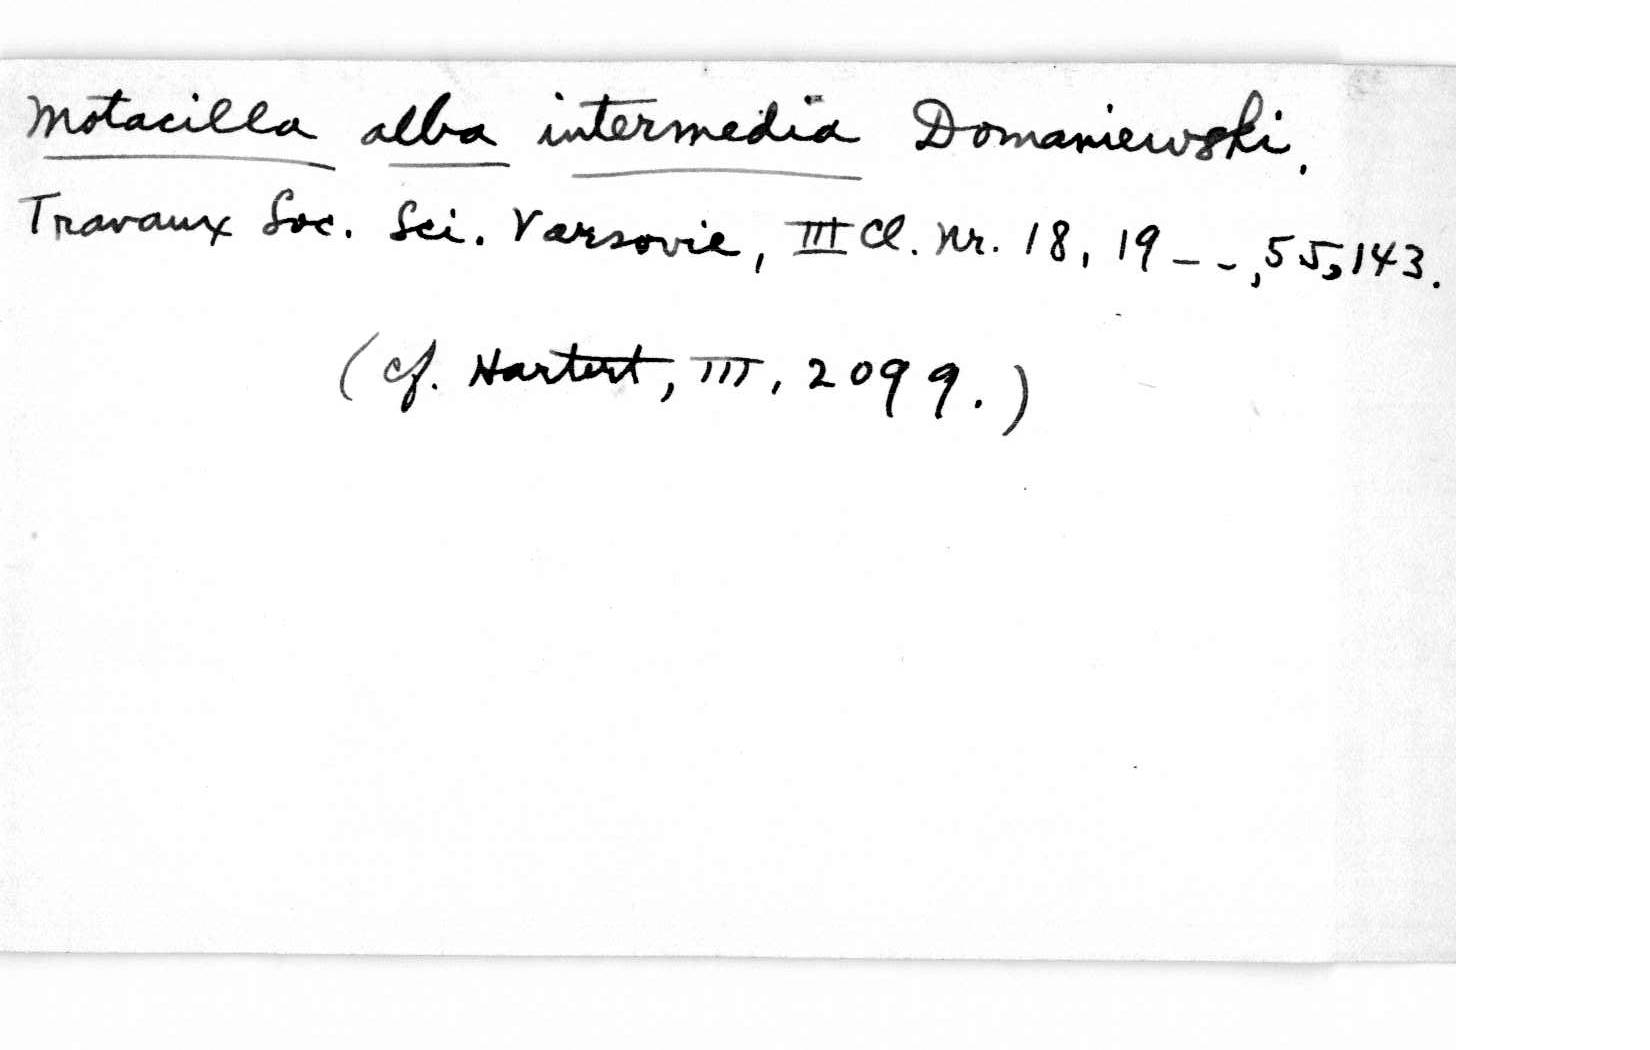 Motacilla alba intermedia Domaniewski.
Travaux Soc. Sci. Varsovie, III Cl. Nr. 18, 19 - -, 55, 143.
(cf. Hartert, III, 2099.)